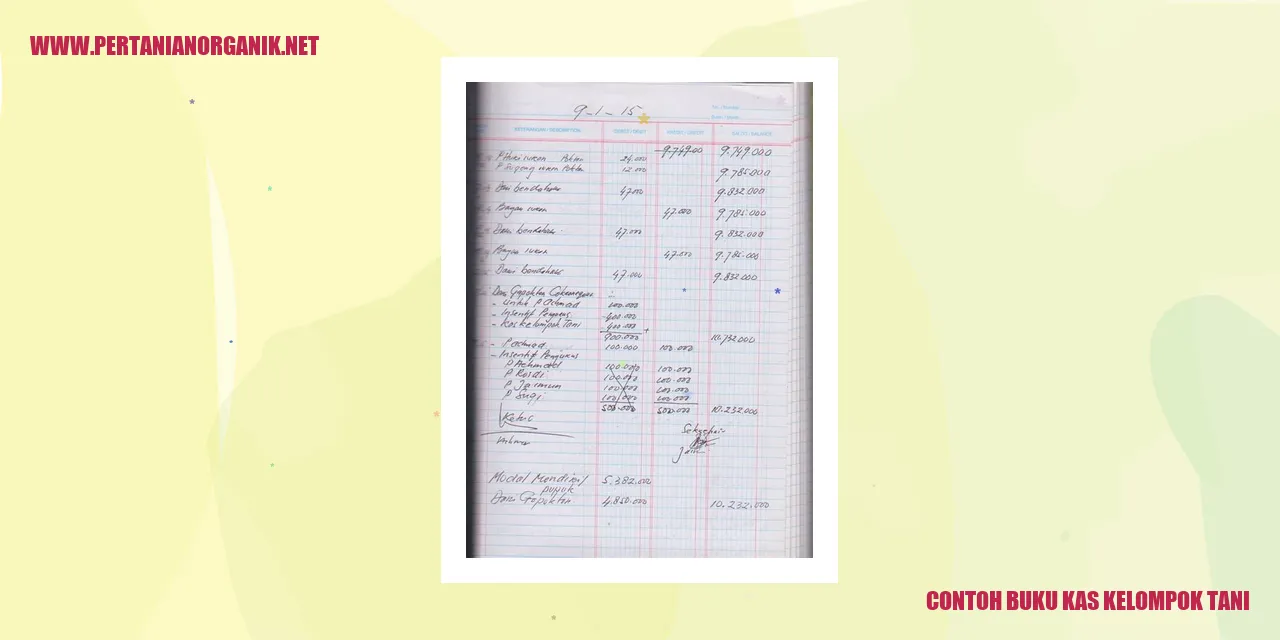 WWW.PERTANIANORGANIK.NET
9-1-15
KETERANGAN / DESCRIPTION DEBET / DEBIT KREDIT / CREDIT SALDO / BALANCE
9.749.00 9.749.000
iuran Poktan 24.000
P Sugeng iuran Poktan 12.000 9.785.000
Dari bendahara 47.000 9.832.000
Bayar iuran 47.000 9.785.000
Dari bendahara 47.000 9.832.000
Bayar iuran 47.000 9.785.000
Dari bendahara 47.000 9.832.000
Dari Gapoktan
- Untuk P Achmad 100.000
- Insentif Pengurus 400.000
- Kas Kelompok Tani 400.000 +
900.000 10.732.000
- P Achmad 100.000 100.000
- Insentif Pengurus
P Achmad 100.000 100.000
P Roidi 100.000 100.000
P Jaimun 100.000 100.000
P Sugi 100.000 100.000
500.000 500.000 10.232.000
Ketua
Modal Mandiri/ 5.382.000
pupuk
Dari Gapoktan 4.850.000 10.232.000
CONTOH BUKU KAS KELOMPOK TANI